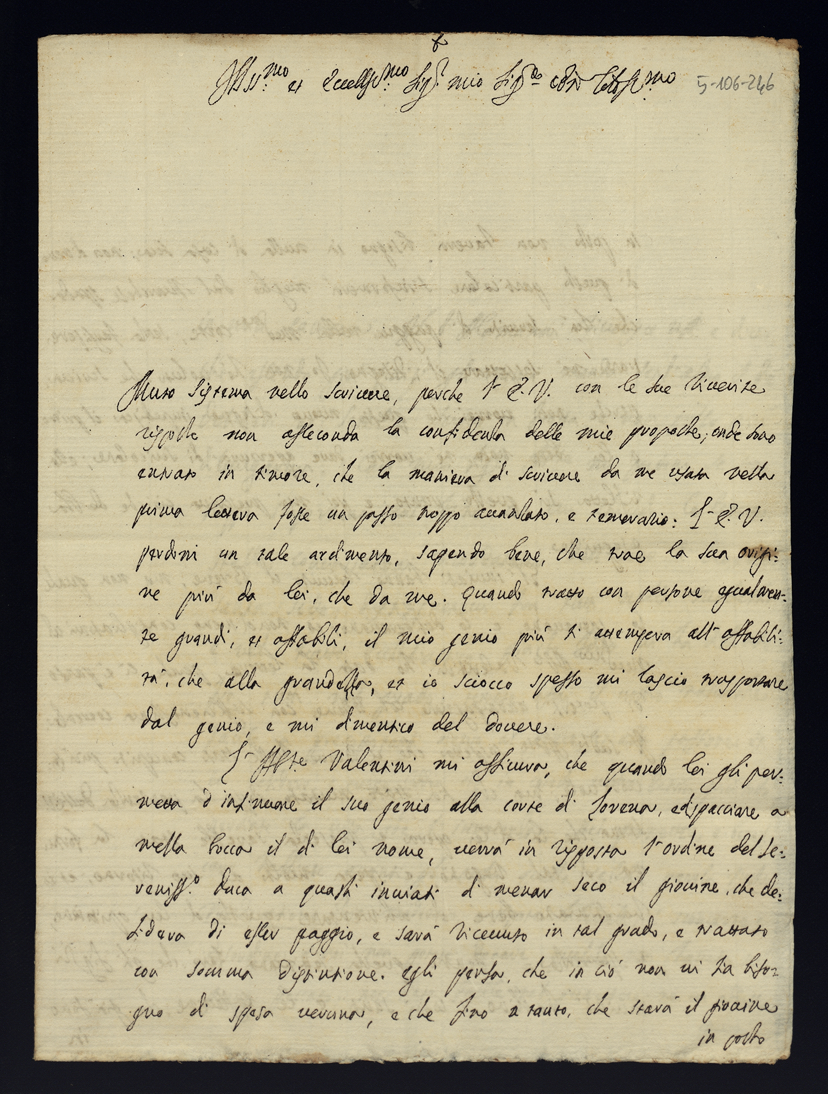 +
Ill.mo et Eccell.mo Sig.r mio Sig.re
5-106-246
Muto sistema nello scrivere, perche l' E. V. con le sue riverite
risposte non asseconda la confidenza delle mie proposte, onde sono
entrato in timore, che la maniera di scrivere da me usata nella
prima lettera fosse un passo troppo avanzato, e temerario: L' E. V.
perdoni un tale ardimento, sapendo bene, che trae la sua origi:
ne più da lei, che da me. Quando tratto con persone egualmen:
te grandi, et affabili, il mio genio più si attempera all' affabili:
tà, che alla grandezza, et io sciocco spesso mi lascio trasportare
dal genio, e mi dimentico del dovere.
L' Ab.te Valentini mi assicura, che quando lei gli per:
metta d' insinuare il suo genio alla corte di Lorena, e di spacciare a
mezza bocca il di lei nome, verrà in risposta l' ordine del Se:
reniss.o Duca a questi inviati di menar seco il giovine, che de:
sidera di esser paggio, e sarà ricevuto in tal grado, e trattato
con somma distintione. Egli pensa, che in ciò non vi sia biso:
gno di spesa veruna, e che fino a tanto, che starà il giovine
in posto